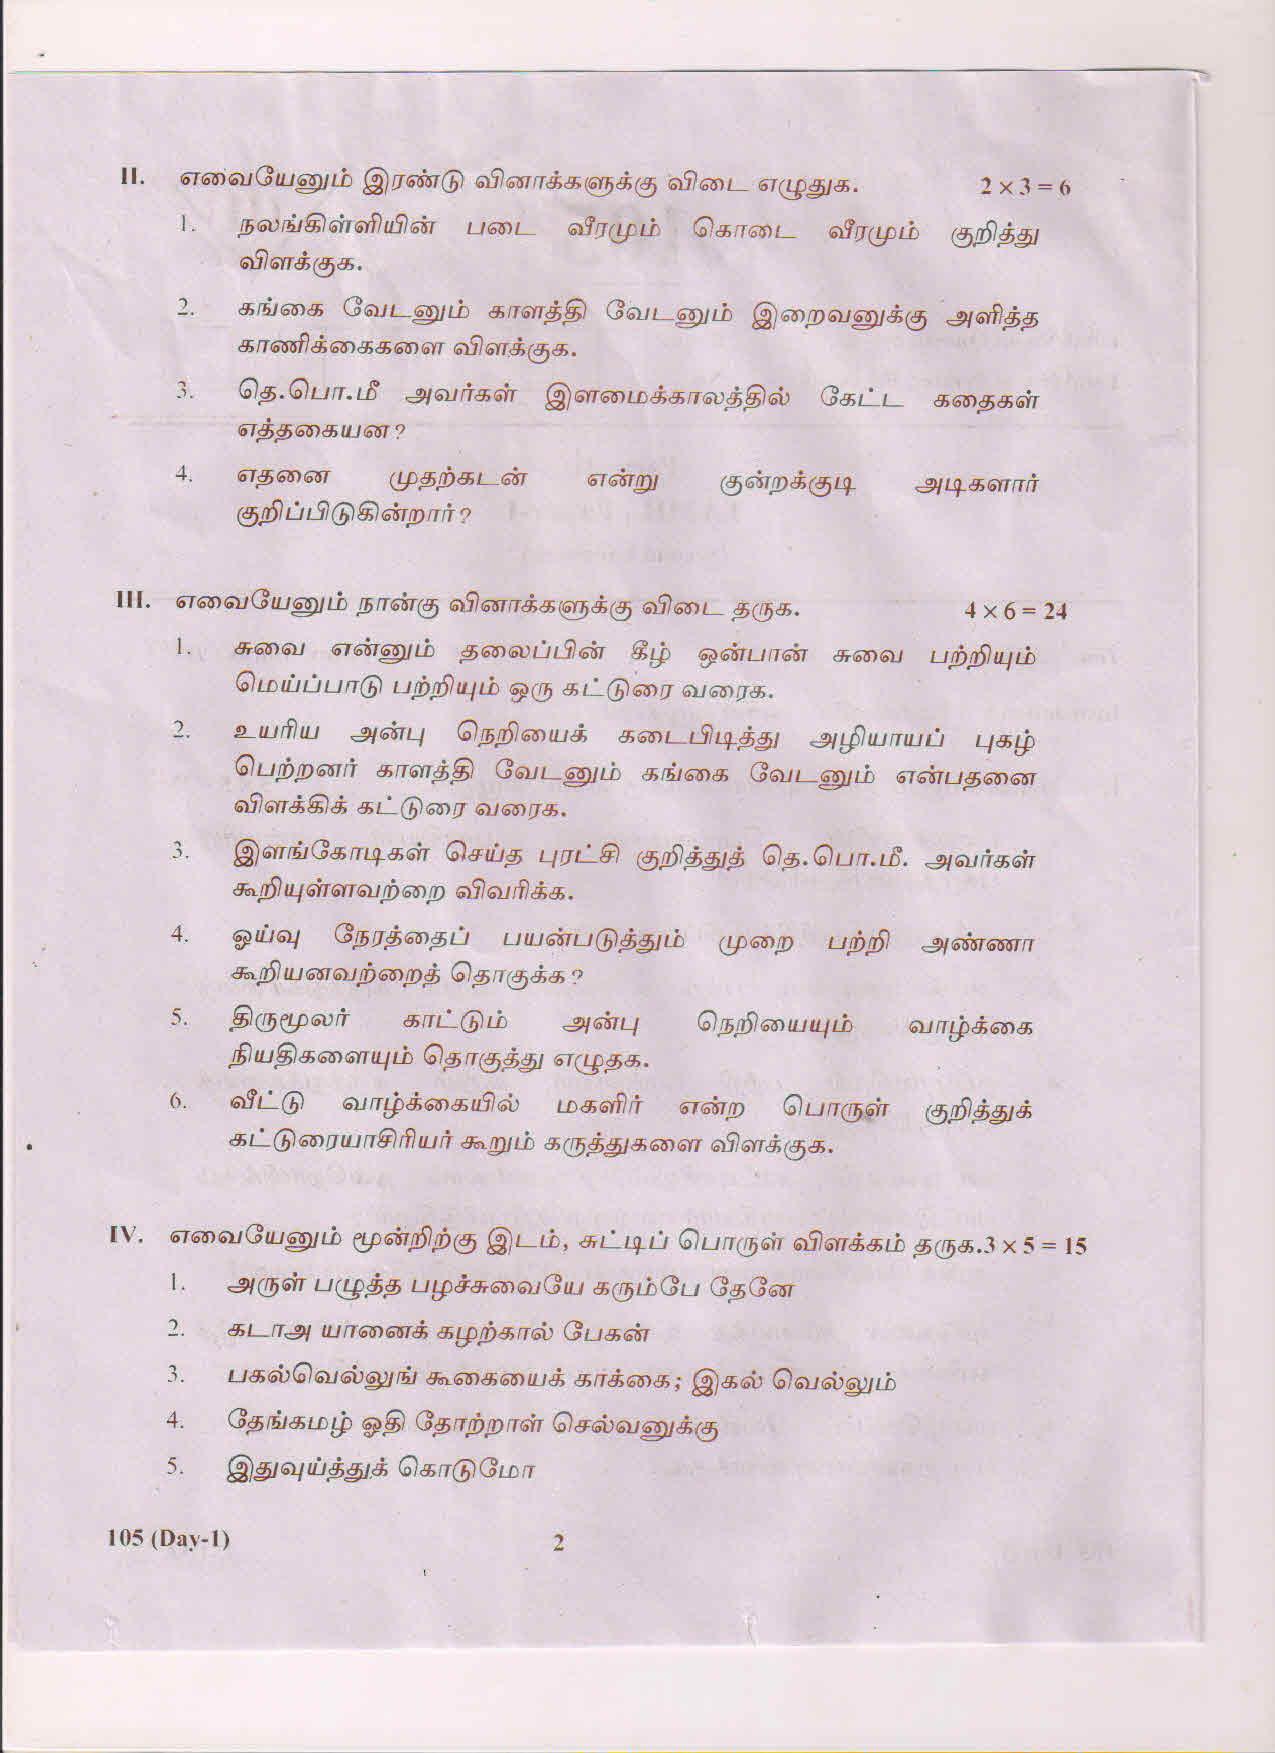 II. எவையேனும் இரண்டு வினாக்களுக்கு விடை எழுதுக. 2 × 3 = 6
1. நலங்கிள்ளியின் படை வீரமும் கொடை வீரமும் குறித்து
விளக்குக.
2. கங்கை வேடனும் காளத்தி வேடனும் இறைவனுக்கு அளித்த
காணிக்கைகளை விளக்குக.
3. தெ.பொ.மீ அவர்கள் இளமைக்காலத்தில் கேட்ட கதைகள்
எத்தகையன?
4. எதனை முதற்கடன் என்று குன்றக்குடி அடிகளார்
குறிப்பிடுகின்றார்?
III. எவையேனும் நான்கு வினாக்களுக்கு விடை தருக. 4 × 6 = 24
1. சுவை என்னும் தலைப்பின் கீழ் ஒன்பான் சுவை பற்றியும்
மெய்ப்பாடு பற்றியும் ஒரு கட்டுரை வரைக.
2. உயரிய அன்பு நெறியைக் கடைபிடித்து அழியாயப் புகழ்
பெற்றனர் காளத்தி வேடனும் கங்கை வேடனும் என்பதனை
விளக்கிக் கட்டுரை வரைக.
3. இளங்கோடிகள் செய்த புரட்சி குறித்துத் தெ.பொ.மீ. அவர்கள்
கூறியுள்ளவற்றை விவரிக்க.
4. ஓய்வு நேரத்தைப் பயன்படுத்தும் முறை பற்றி அண்ணா
கூறியனவற்றைத் தொகுக்க?
5. திருமூலர் காட்டும் அன்பு நெறியையும் வாழ்க்கை
நியதிகளையும் தொகுத்து எழுதக.
6. வீட்டு வாழ்க்கையில் மகளிர் என்ற பொருள் குறித்துக்
கட்டுரையாசிரியர் கூறும் கருத்துகளை விளக்குக.
IV. எவையேனும் மூன்றிற்கு இடம், சுட்டிப் பொருள் விளக்கம் தருக.3 × 5 = 15
1. அருள் பழுத்த பழச்சுவையே கரும்பே தேனே
2. கடாஅ யானைக் கழற்கால் பேகன்
3. பகல்வெல்லுங் கூகையைக் காக்கை; இகல் வெல்லும்
4. தேங்கமழ் ஓதி தோற்றாள் செல்வனுக்கு
5. இதுவுய்த்துக் கொடுமோ
105 (Day-1) 2